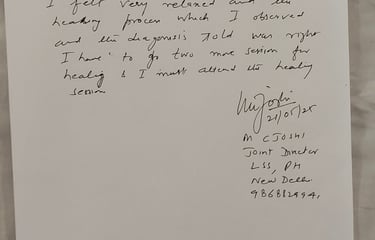 I felt very relaxed and the
healing process which I observed
and the diagnosis told was right
I have to go two more session for
healing & I must attend the healing
session
21/05/25
M C JOSHI
Joint Director
LSS, PH
New Delhi